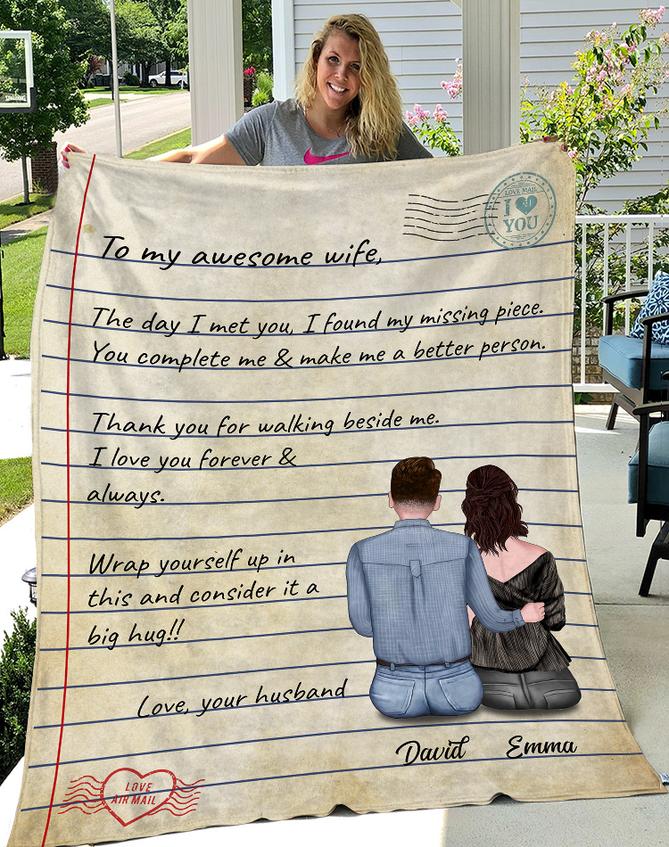 LOVE MAIL
I
YOU
To my awesome wife,
The day I met you, I found my missing piece.
You complete me & make me a better person.
Thank you for walking beside me.
I love you forever &
always.
Wrap yourself up in
this and consider it a
big hug!!
Love, your husband
David Emma
LOVE
AIR MAIL